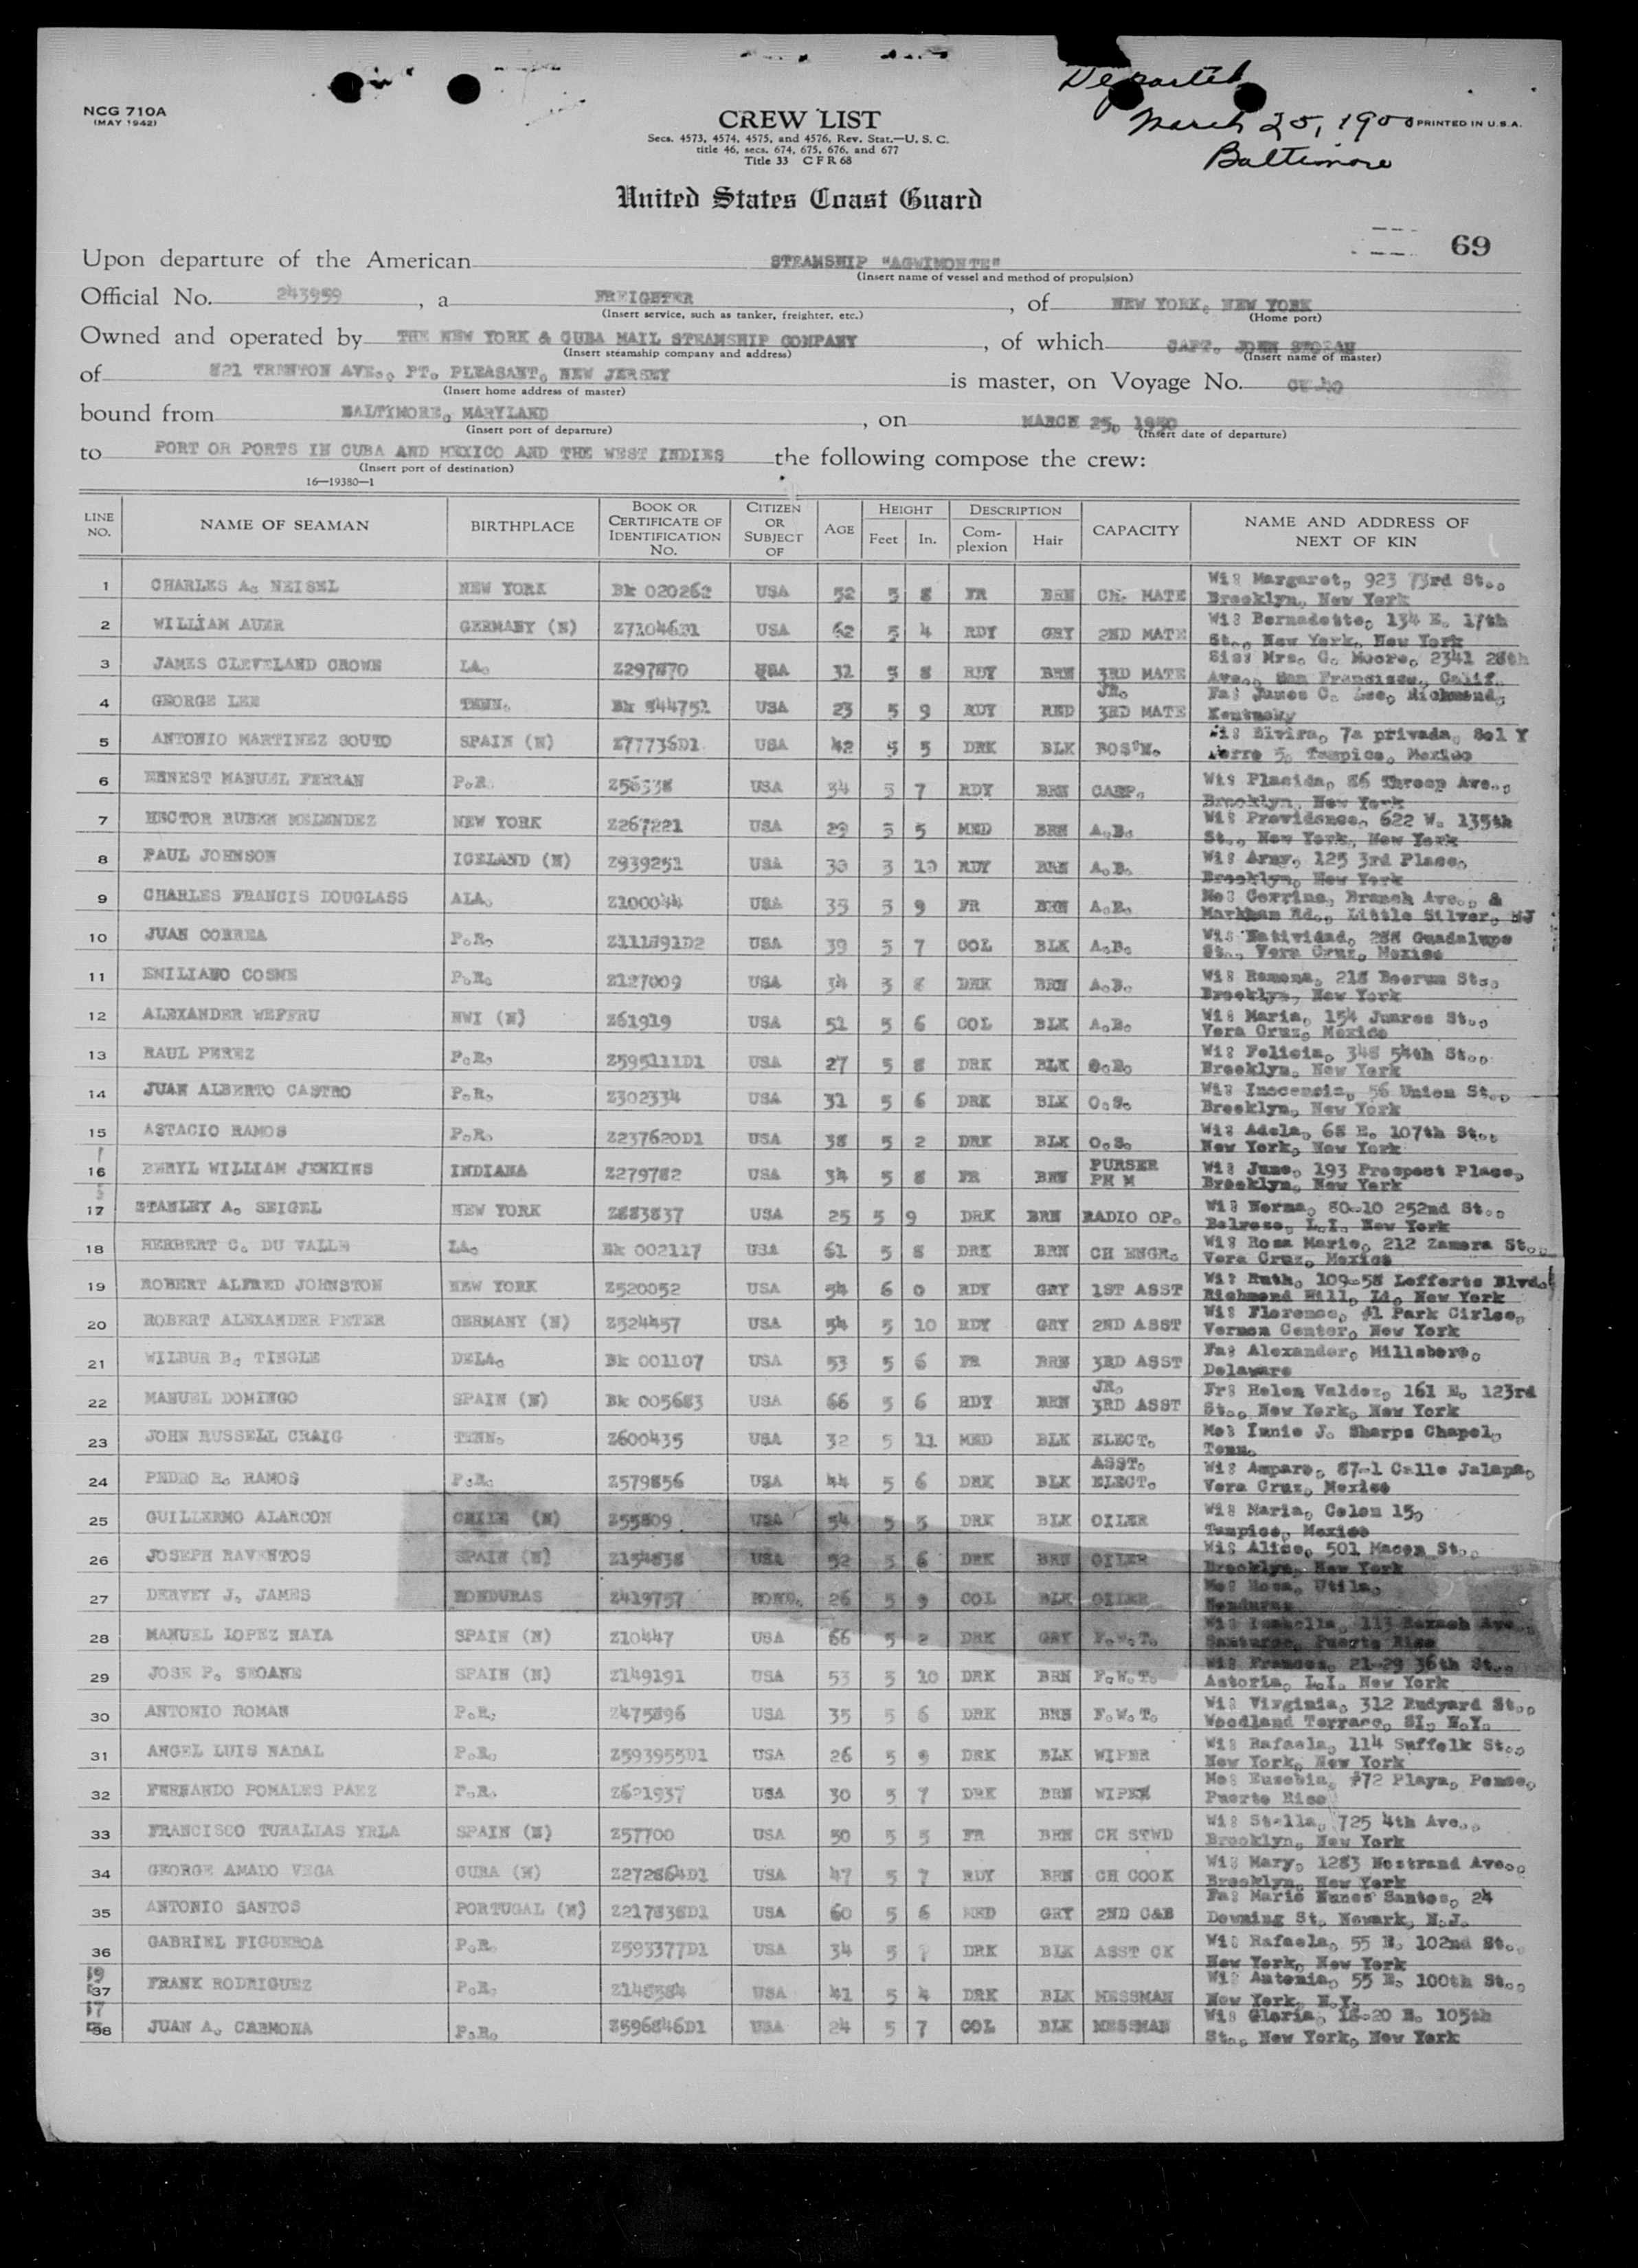 NCG 710A
(MAY 1942)
Departed
March 25, 1950
Baltimore
PRINTED IN U.S.A.
CREW LIST
Secs. 4573, 4574, 4575, and 4576, Rev. Stat.—U. S. C.
title 46, secs. 674, 675, 676, and 677
Title 33 C F R 68
United States Coast Guard
69
Upon departure of the American STEAMSHIP "AGWIMONTE"
(Insert name of vessel and method of propulsion)
Official No. 243959, a FREIGHTER, of NEW YORK, NEW YORK
(Insert service, such as tanker, freighter, etc.) (Home port)
Owned and operated by THE NEW YORK & CUBA MAIL STEAMSHIP COMPANY, of which CAPT. JOHN
(Insert steamship company and address) (Insert name of master)
of 821 TRENTON AVE., PT. PLEASANT, NEW JERSEY is master, on Voyage No.
(Insert home address of master)
bound from BALTIMORE, MARYLAND, on MARCH 25, 1950
(Insert port of departure) (Insert date of departure)
to PORT OR PORTS IN CUBA AND MEXICO AND THE WEST INDIES the following compose the crew:
(Insert port of destination)
16—19380—1
LINE NO. NAME OF SEAMAN BIRTHPLACE BOOK OR CERTIFICATE OF IDENTIFICATION NO. CITIZEN OR SUBJECT OF AGE HEIGHT Feet In. DESCRIPTION Complexion Hair CAPACITY NAME AND ADDRESS OF NEXT OF KIN
1 CHARLES A. NEISEL NEW YORK Bk 020262 USA 52 5 8 FR BRN CH. MATE Wi: Margaret, 923 73rd St., Brooklyn, New York
2 WILLIAM AUER GERMANY (N) Z71046D1 USA 62 5 4 RDY GRY 2ND MATE Wi: Bernadette, 134 E. 17th St., New York, New York
3 JAMES CLEVELAND CROWN LA. Z297870 USA 31 5 8 RDY BRN 3RD MATE Sis: Mrs. C. Moore, 2341 28th Ave., San Francisco, Calif.
4 GEORGE LEE TENN. Bk 544751 USA 23 5 9 RDY RED JR. 3RD MATE Fa: James C. Lee, Richmond, Kentucky
5 ANTONIO MARTINEZ SOUTO SPAIN (N) Z77736D1 USA 42 5 5 DRK BLK BOS'N. Wi: Elvira, 7a privada, Sol Y 5, Tampico, Mexico
6 ERNEST MANUEL FERRAN P.R. Z56338 USA 34 5 7 RDY BRN CARP. Wi: Placida, 86 Throop Ave., Brooklyn, New York
7 HECTOR RUBEN MELENDEZ NEW YORK Z267221 USA 29 5 5 MED BRN A.B. Wi: Providence, 622 W. 135th St., New York, New York
8 PAUL JOHNSON ICELAND (N) Z939251 USA 30 5 10 RDY BRN A.B. Wi: Army, 125 3rd Place, Brooklyn, New York
9 CHARLES FRANCIS DOUGLASS ALA. Z100044 USA 35 5 9 FR BRN A.B. Mo: Corrine, Branch Ave., & Markham Rd., Little Silver, NJ
10 JUAN CORREA P.R. Z111891D2 USA 39 5 7 COL BLK A.B. Wi: Natividad, 288 Guadalupe St., Vera Cruz, Mexico
11 EMILIANO COSME P.R. Z127009 USA 34 5 8 DRK BRN A.B. Wi: Ramona, 218 Boerum St., Brooklyn, New York
12 ALEXANDER WEFFRU NWI (N) Z61919 USA 51 5 6 COL BLK A.B. Wi: Maria, 154 Juares St., Vera Cruz, Mexico
13 RAUL PEREZ P.R. Z595111D1 USA 27 5 8 DRK BLK Wi: Felicia, 348 54th St., Brooklyn, New York
14 JUAN ALBERTO CASTRO P.R. Z302334 USA 31 5 6 DRK BLK O.S. Wi: Inocencia, 56 Union St., Brooklyn, New York
15 ASTACIO RAMOS P.R. Z237620D1 USA 38 5 2 DRK BLK O.S. Wi: Adela, 68 E. 107th St., New York, New York
16 BERYL WILLIAM JENKINS INDIANA Z279782 USA 34 5 8 FR BRN PURSER PH M Wi: June, 193 Prospect Place, Brooklyn, New York
17 STANLEY A. SEIGEL NEW YORK Z883837 USA 25 5 9 DRK BRN RADIO OP. Wi: Norma, 80-10 252nd St., Belrose, L.I. New York
18 HERBERT C. DU VALLE LA. Bk 002117 USA 61 5 8 DRK BRN CH ENGR. Wi: Rosa Marie, 212 Zamora St., Vera Cruz, Mexico
19 ROBERT ALFRED JOHNSTON NEW YORK Z520052 USA 54 6 0 RDY GRY 1ST ASST Wi: Ruth, 109-58 Lefferts Blvd. Richmond Hill, LI, New York
20 ROBERT ALEXANDER PETER GERMANY (N) Z524457 USA 54 5 10 RDY GRY 2ND ASST Wi: Florence, 41 Park Cirlce, Vernon Center, New York
21 WILBUR B. TINGLE DELA. Bk 001107 USA 53 5 6 FR BRN 3RD ASST Fa: Alexander, Millsboro, Delaware
22 MANUEL DOMINGO SPAIN (N) Bk 005683 USA 66 5 6 RDY BRN JR. 3RD ASST Fr: Helen Valdez, 161 E. 123rd St., New York, New York
23 JOHN RUSSELL CRAIG TENN. Z600435 USA 32 5 11 MED BLK ELECT. Mo: Innie J. Sharps Chapel, Tenn.
24 PEDRO R. RAMOS P.R. Z579856 USA 44 5 6 DRK BLK ASST. ELECT. Wi: Amparo, 87-1 Calle Jalapa, Vera Cruz, Mexico
25 GUILLERMO ALARCON CHILE (N) Z55809 USA 54 5 5 DRK BLK OILER Wi: Maria, Colon 15, Tampico, Mexico
26 JOSEPH RAVENTOS SPAIN (N) Z154838 USA 52 5 6 DRK BRN OILER Wi: Alice, 501 Macon St., Brooklyn, New York
27 DERVEY J. JAMES HONDURAS Z419757 HOND. 26 5 9 COL BLK OILER Mo: Rosa, Utila, Honduras
28 MANUEL LOPEZ HAYA SPAIN (N) Z10447 USA 66 5 2 DRK GRY F.W.T. Wi: Isabella, 113 Ave., Santurce, Puerto Rico
29 JOSE P. SEOANE SPAIN (N) Z149191 USA 53 5 10 DRK BRN F.W.T. Wi: Frances, 21-29 36th St., Astoria, L.I. New York
30 ANTONIO ROMAN P.R. Z475896 USA 35 5 6 DRK BRN F.W.T. Wi: Virginia, 312 Rudyard St., Woodland Terrace, SI, N.Y.
31 ANGEL LUIS NADAL P.R. Z593955D1 USA 26 5 9 DRK BLK WIPER Wi: Rafaela, 114 Suffolk St., New York, New York
32 FERNANDO POMALES PAEZ P.R. Z621937 USA 30 5 7 DRK BRN WIPER Mo: Eusebia, #72 Playa, Ponce, Puerto Rico
33 FRANCISCO TURALLAS YRLA SPAIN (N) Z57700 USA 50 5 5 FR BRN CH STWD Wi: Stella, 725 4th Ave., Brooklyn, New York
34 GEORGE AMADO VEGA CUBA (N) Z272864D1 USA 47 5 7 RDY BRN CH COOK Wi: Mary, 1283 Nostrand Ave., Brooklyn, New York
35 ANTONIO SANTOS PORTUGAL (N) Z217838D1 USA 60 5 6 MED GRY 2ND C&B Fa: Mario Nunes Santos, 24 Downing St. Newark, N.J.
36 GABRIEL FIGUEROA P.R. Z593377D1 USA 34 5 DRK BLK ASST CK Wi: Rafaela, 55 E. 102nd St., New York, New York
37 FRANK RODRIGUEZ P.R. Z148584 USA 41 5 4 DRK BLK MESSMAN Wi: Antonia, 55 E. 100th St., New York, N.Y.
38 JUAN A. CARMONA P.R. Z596846D1 USA 24 5 7 COL BLK MESSMAN Wi: Gloria, 18-20 E. 105th St., New York, New York